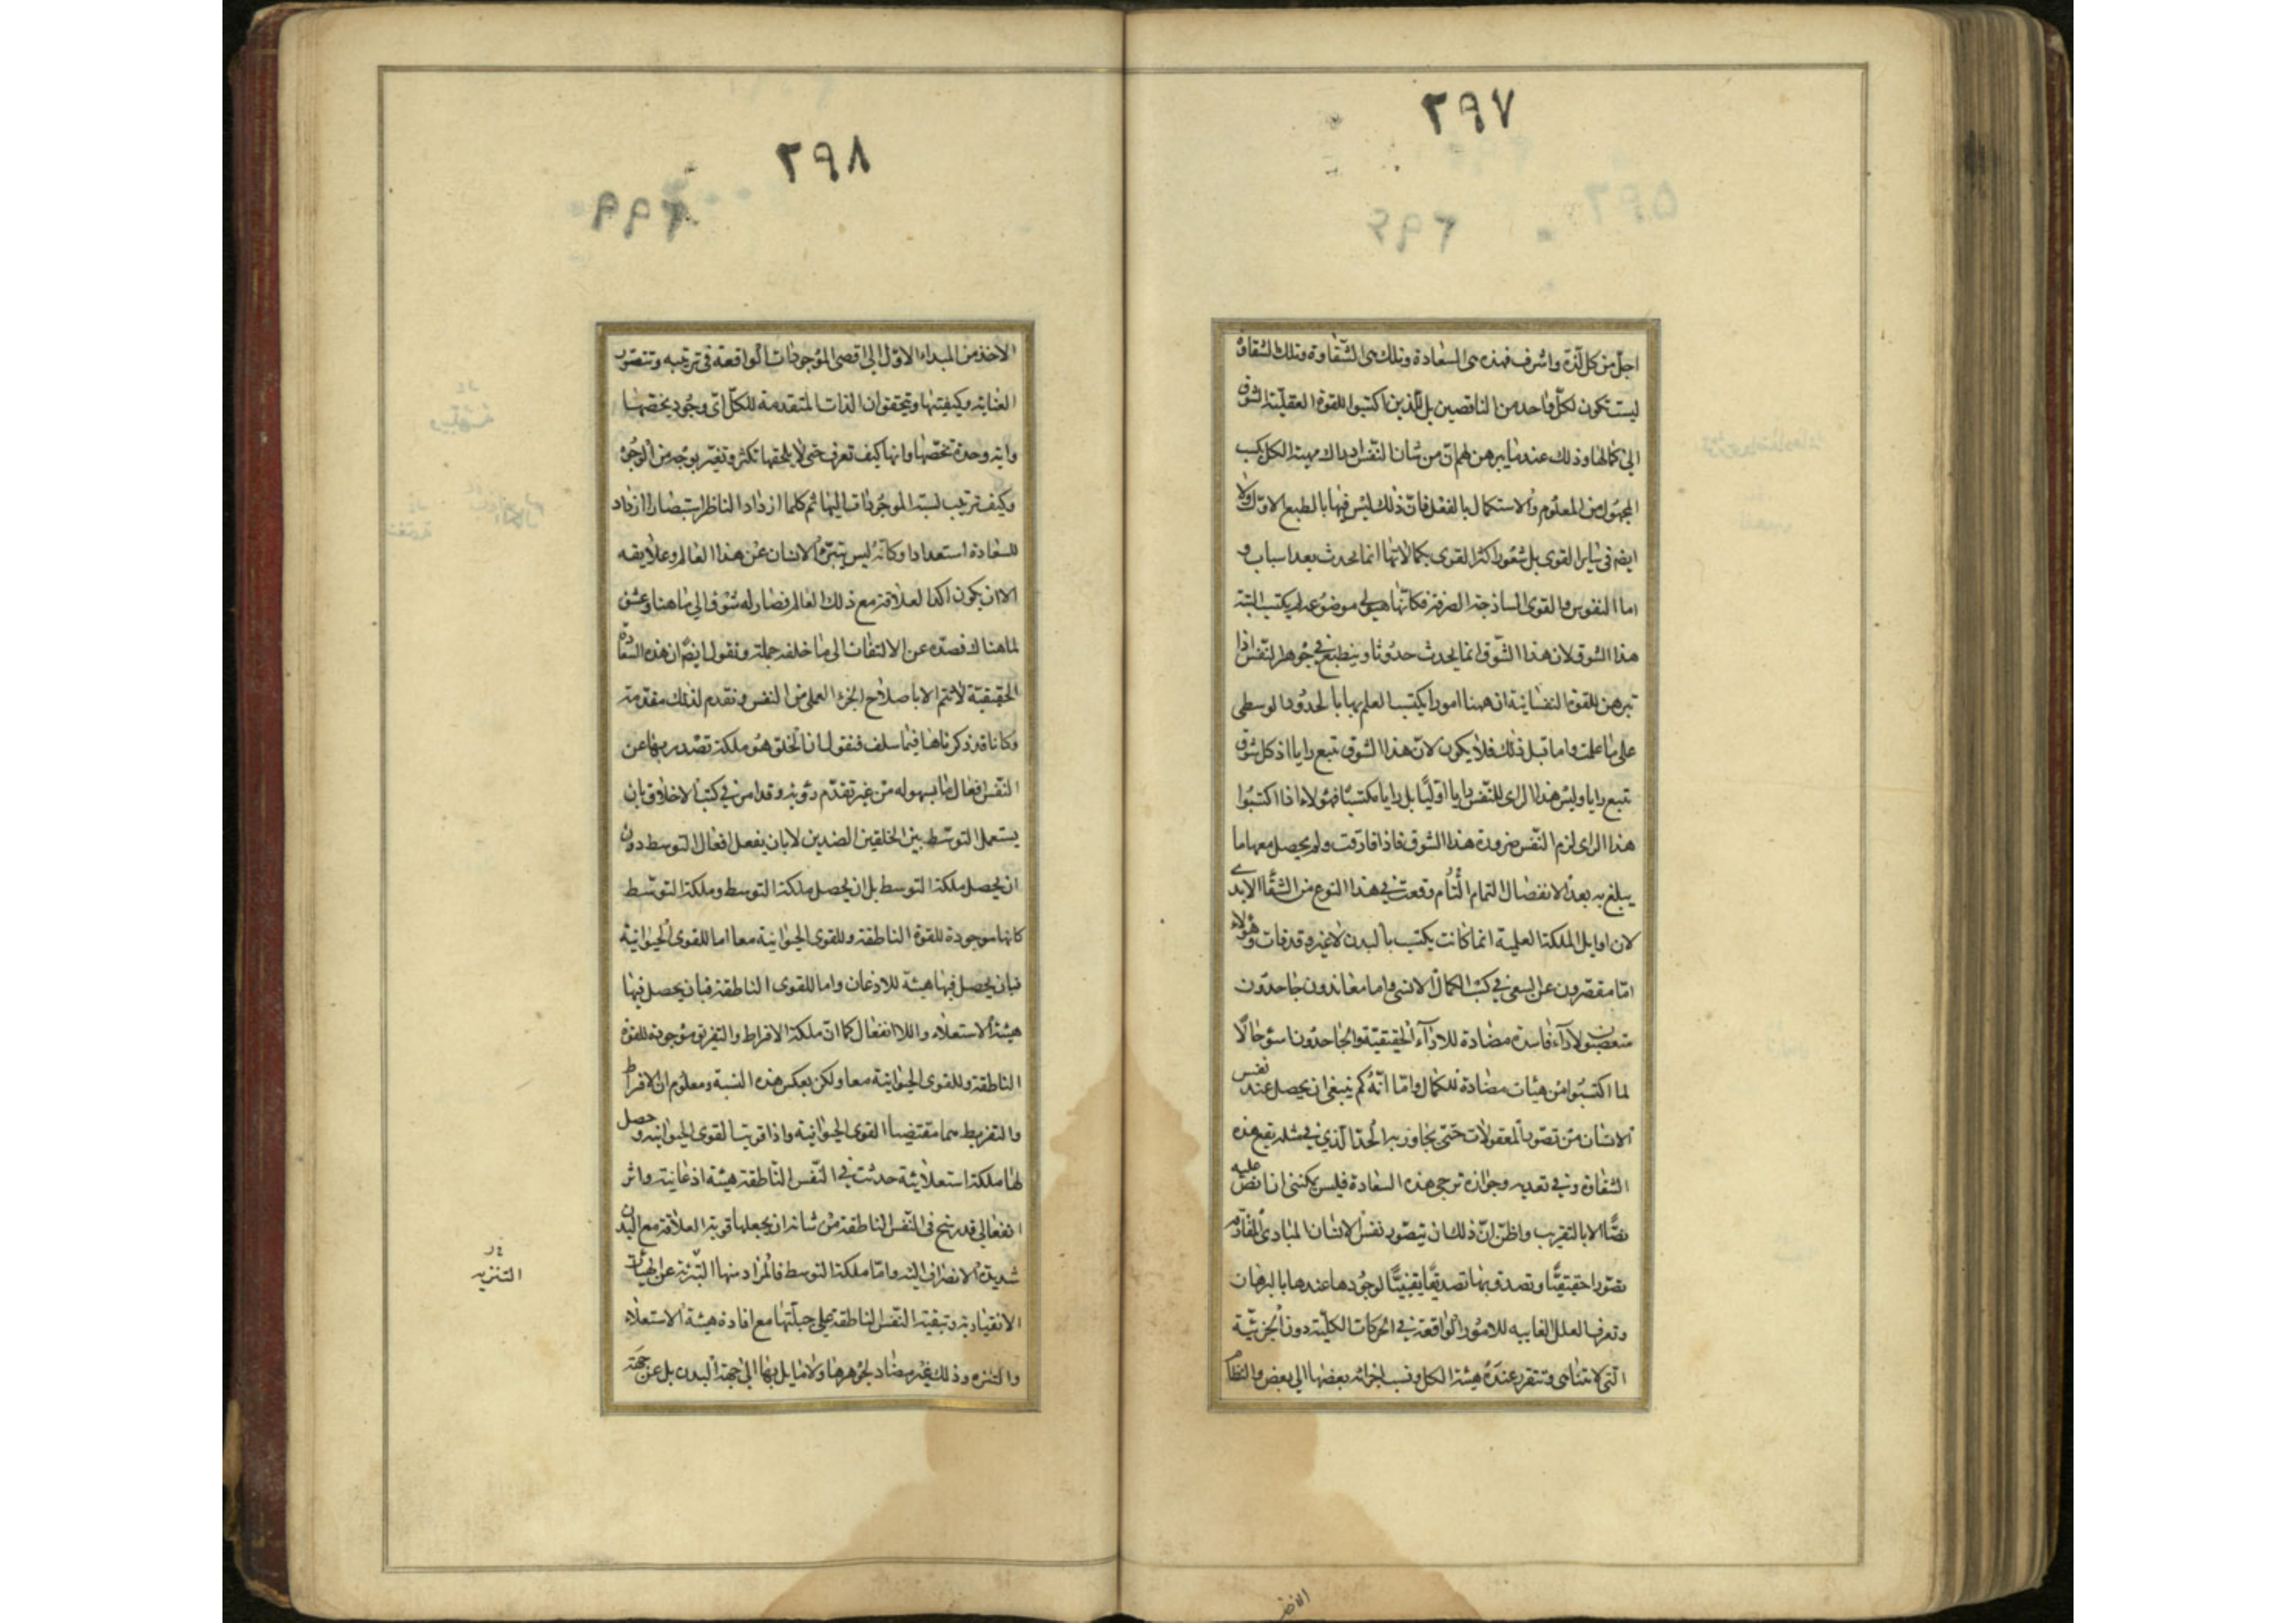 ٢٩٧
اجل من كل لذة واشرف فهذه هى السعادة وتلك هى الشقاوة وتلك الشقاوة
ليست تكون لكل واحد من الناقصين بل للذين اكتسبوا للقوة العقلية الشوق
الى كمالها وذلك عندما يبرهن لهم ان من شان النفس ادراك مهية الكل بكسب
المجهول من المعلوم والاستكمال بالفعل فان ذلك ليس فيها بالطبع الاول ولا
ايضم فى ساير القوى بل شعور اكثر القوى بكمالاتها انما يحدث بعد اسباب و
اما النفوس والقوى الساذجة الصرفة فكانها هيولى موضوعه لم يكتسب البتة
هذا الشوق لان هذا الشوق انما يحدث حدوثا وينطبع فى جوهر النفس اذا
تبرهن للقوة النفسانية ان ههنا امورا يكتسب العلم بها بالحدود الوسطى
على ما علمت واما قبل ذلك فلا يكون لان هذا الشوق تبع رايا اذ كل شوق
تتبع رايا وليس هذا الراى للنفس رايا اوليا بل رايا مكتسبا فهؤلاء اذا اكتسبوا
هذا الراى لزم النفس ضرورة هذا الشوق فاذا فارقت ولم يحصل معها ما
يبلغ به بعد الانفصال التمام التام وقعت فى هذا النوع من الشقا الابدى
لان اوايل الملكة العلمية انما كانت يكتسب بالبدن لا غيره وقد فات وهؤلاء
اما مقصرون عن السعى فى كسب الكمال الانسى واما معاندون جاحدون
متعصبون لآراء فاسدة مضادة للاراء الحقيقية والجاحدون اسوء حالا
لما اكتسبوا من هيئات مضادة للكمال واما انه كم ينبغى ان يحصل عند نفس
الانسان من تصور المعقولات حتى تجاوز به الحد الذى فى مثله تقع هذه
الشقاوة وفى تعديه وجوازه ترجى هذه السعادة فليس يمكننى ان انص عليه
نصا الا بالتقريب واظن ان ذلك ان يتصور نفس الانسان المبادى المفارقة
تصورا حقيقيا وتصدق بها تصديقا يقينيا لوجودها عندها بالبرهان
وتعرف العلل الغاييه للامور الواقعة فى الحركات الكلية دون الجزئية
التى لا تتناهى وتتقرر عنده هيئة الكل ونسب اجزائه بعضها الى بعض والنظام
الاخذ
٢٩٨
الاخذ من المبداء الاول الى اقصى الموجودات الواقعة فى ترتيبه وتتصور
العنايه وكيفيتها وتتحقق ان الذات المتقدمة للكل اى وجود يخصها
واية وحدة تخصها وانها كيف تعرف حتى لا يلحقها تكثر وتغير بوجه من الوجوه
وكيف ترتيب نسبة الموجودات اليها ثم كلما ازداد الناظر استبصارا ازداد
للسعادة استعدادا وكانه ليس يتبرء الانسان عن هذا العالم وعلايقه
الا ان يكون اكد العلاقة مع ذلك العالم فصار له شوق الى ما هناك وعشق
لما هناك فصده عن الالتفات الى ما خلفه جملة ونقول ايضم ان هذه السعادة
الحقيقية لا تتم الا باصلاح الجزء العملى من النفس ونقدم لذلك مقدمة
وكانا قد ذكرناها فيما سلف فنقول ان الخلق هو ملكة تصدر بها عن
النفس افعال ما بسهوله من غير تقدم روية وقد امر فى كتب الاخلاق بان
يستعمل التوسط بين الخلقين الضدين لا بان يفعل افعال التوسط دون
ان يحصل ملكة التوسط بل ان يحصل ملكة التوسط وملكة التوسط
كانها موجودة للقوة الناطقة وللقوى الحيوانية معا اما للقوى الحيوانية
فبان يحصل فيها هيئة للاذعان واما للقوى الناطقة فبان يحصل فيها
هيئة الاستعلاء واللا انفعال كما ان ملكة الافراط والتفريط موجودة للقوة
الناطقة وللقوى الحيوانية معا ولكن بعكس هذه النسبة ومعلوم ان الافراط
والتفريط هما مقتضيا القوى الحيوانية واذا قويت القوى الحيوانية وحصل
لها ملكة استعلائية حدثت فى النفس الناطقة هيئة اذعانية واثر
انفعالى قد رسخ فى النفس الناطقة من شانه ان يجعلها قوية العلاقة مع البدن
شديدة الانصراف اليه واما ملكة التوسط فالمراد منها التبرئة عن الهيئات
الانقيادية وتبقية النفس الناطقة على جبلتها مع افادة هيئة الاستعلاء
والتنزه وذلك غير مضاد لجوهرها ولا مايل بها الى جهة البدن بل عن جهته
التنزيه